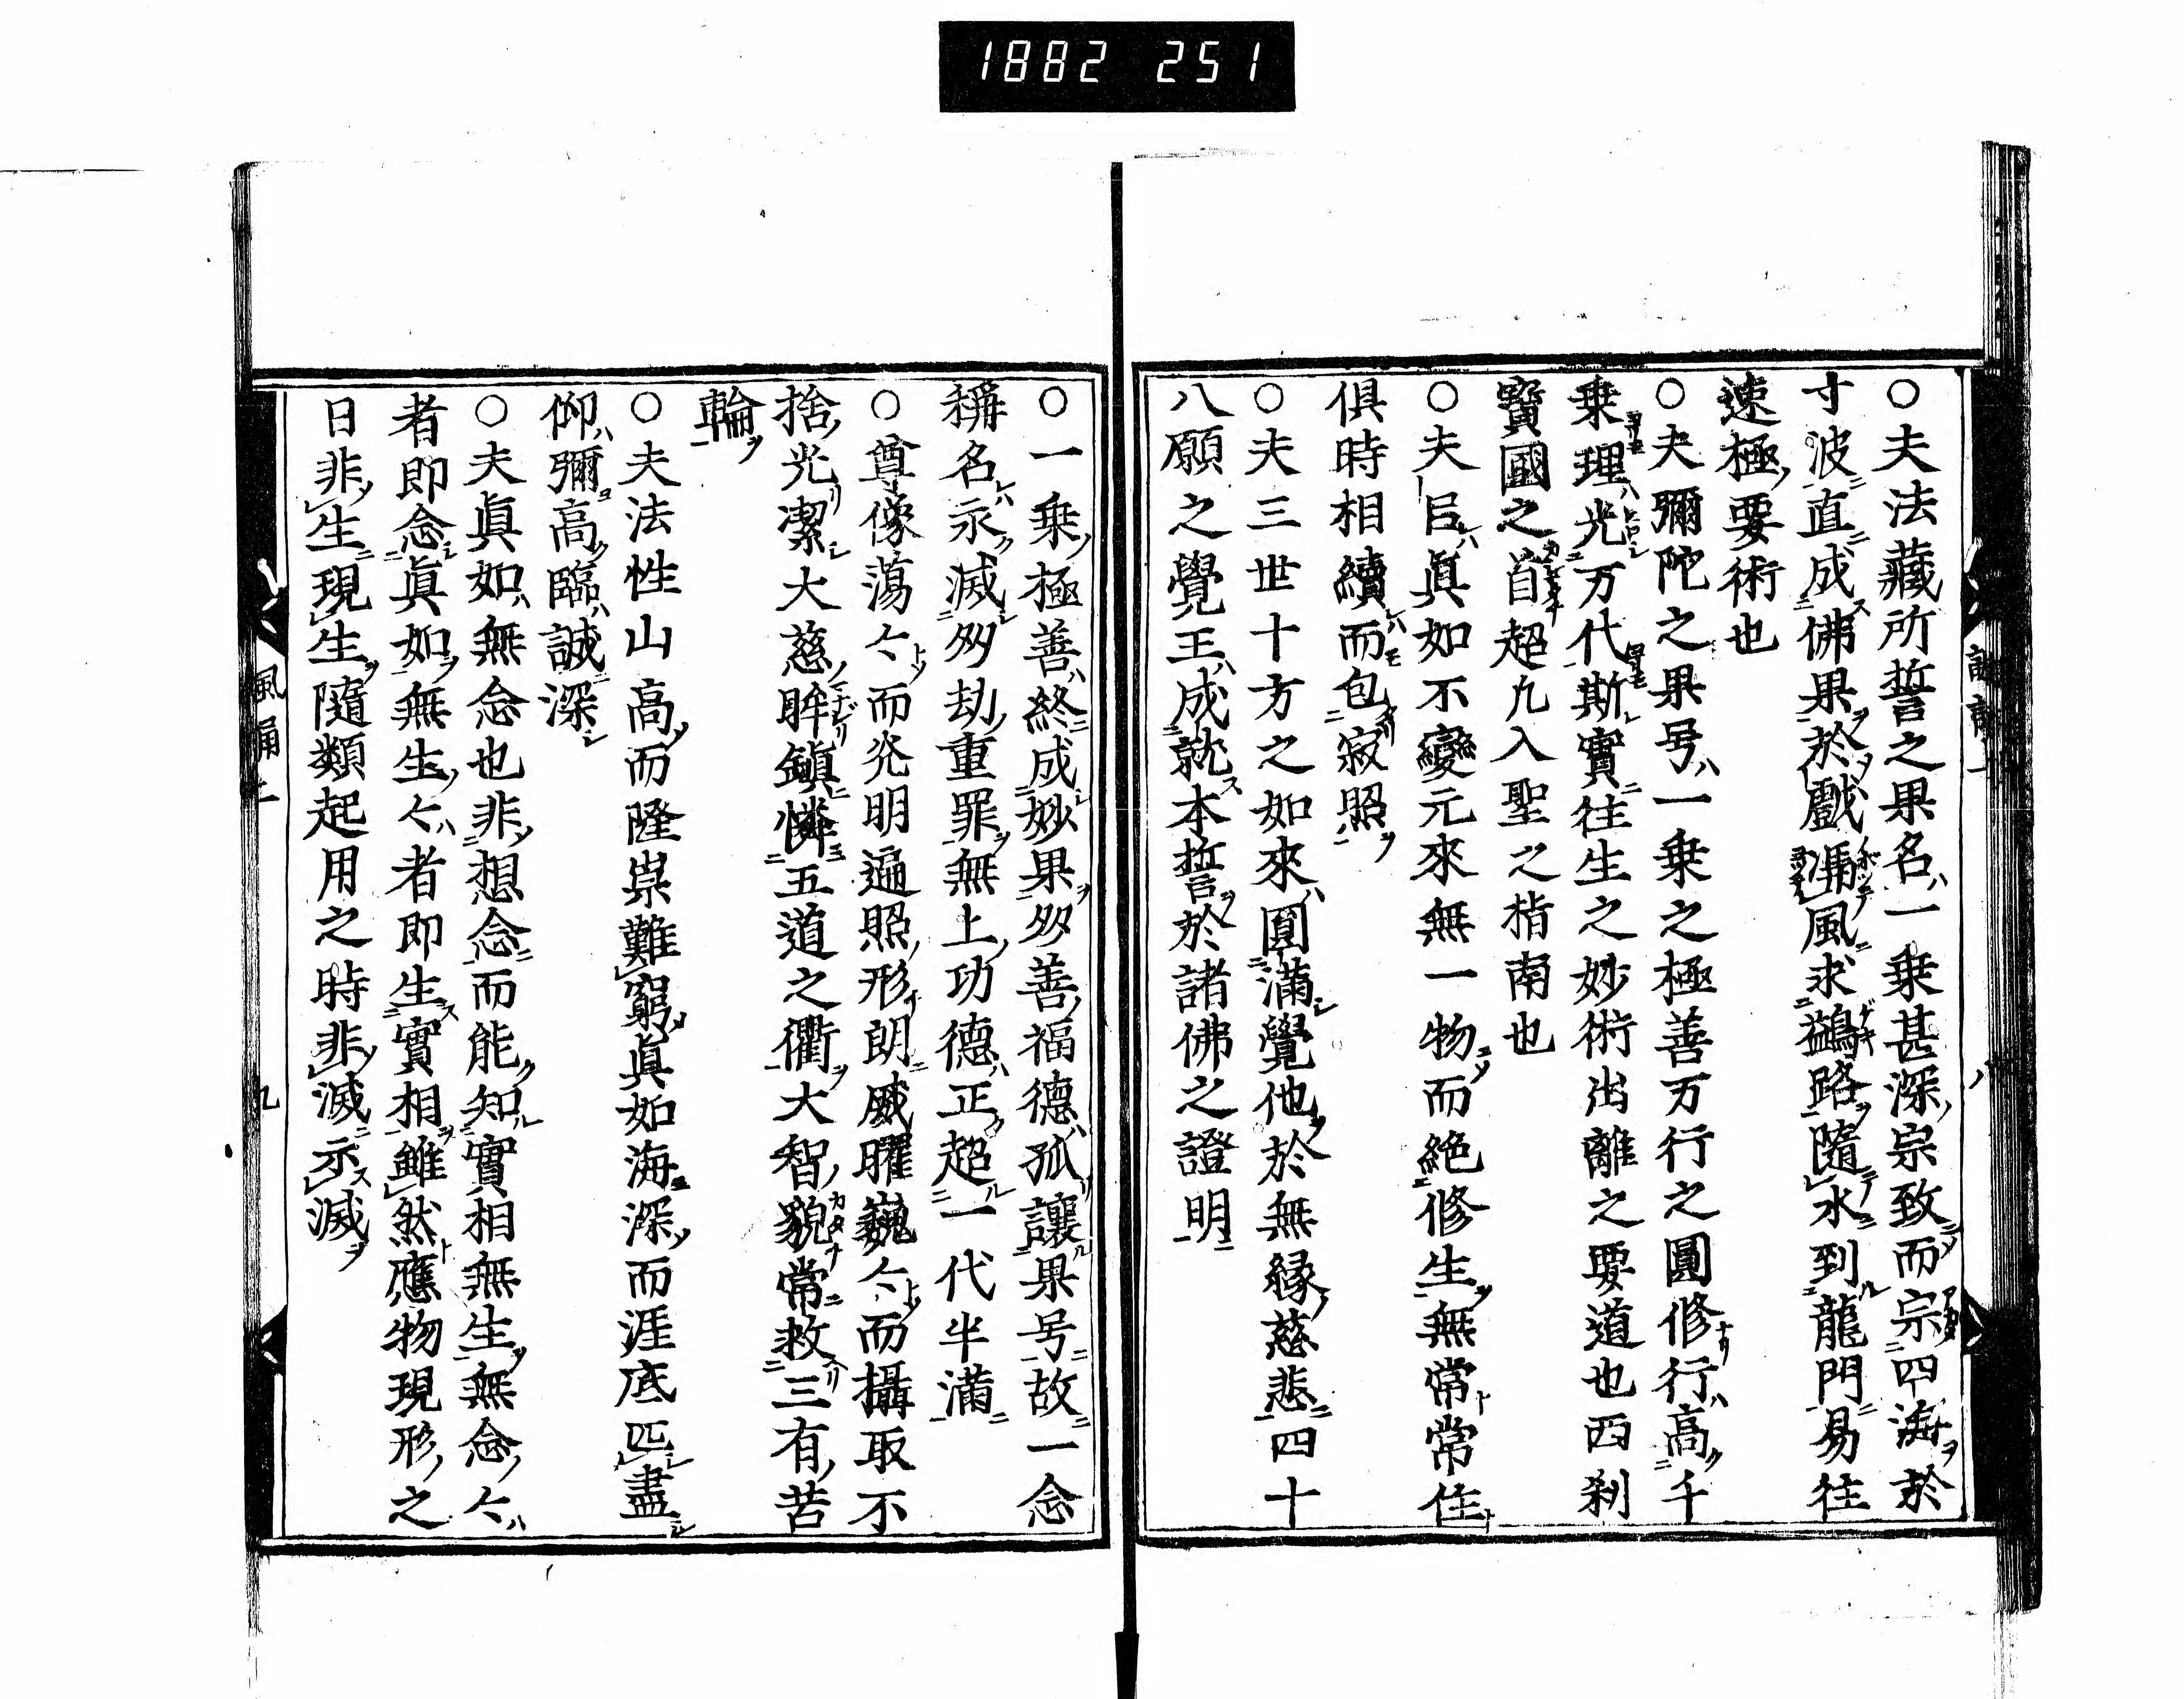 1882 251
○夫法藏所誓之果名一乗甚深宗致而宗四海於
寸波直成佛果於戯馮風求鷁路隨水到龍門易往
速極要術也
○夫彌陀之果号一乗之極善万行之圓修行高千
乗理光万代斯實往生之妙術出離之要道也西刹
寳國之首超凡入聖之指南也
○夫㠯眞如不變元來無一物而絶修生無常常住
俱時相續而包寂照
○夫三世十方之如來圓滿覺他於無縁慈悲四十
八願之覺王成就本誓於諸佛之證明
八
○一乗極善終成妙果多善福德孤讓果号故一念
稱名永滅多劫重罪無上功德正超一代半滿
○尊像蕩々而光明遍照形朗威曜巍々而攝取不
捨光潔大慈眸鎭憐五道之衢大智貌常救三有苦
輪
○夫法性山高而隆崇難窮眞如海深而涯底叵盡
仰彌高臨誠深
○夫眞如無念也非想念而能知實相無生無念々
者即念眞如無生々者即生實相雖然應物現形之
日非生現生隨類起用之時非滅示滅
風誦上
九